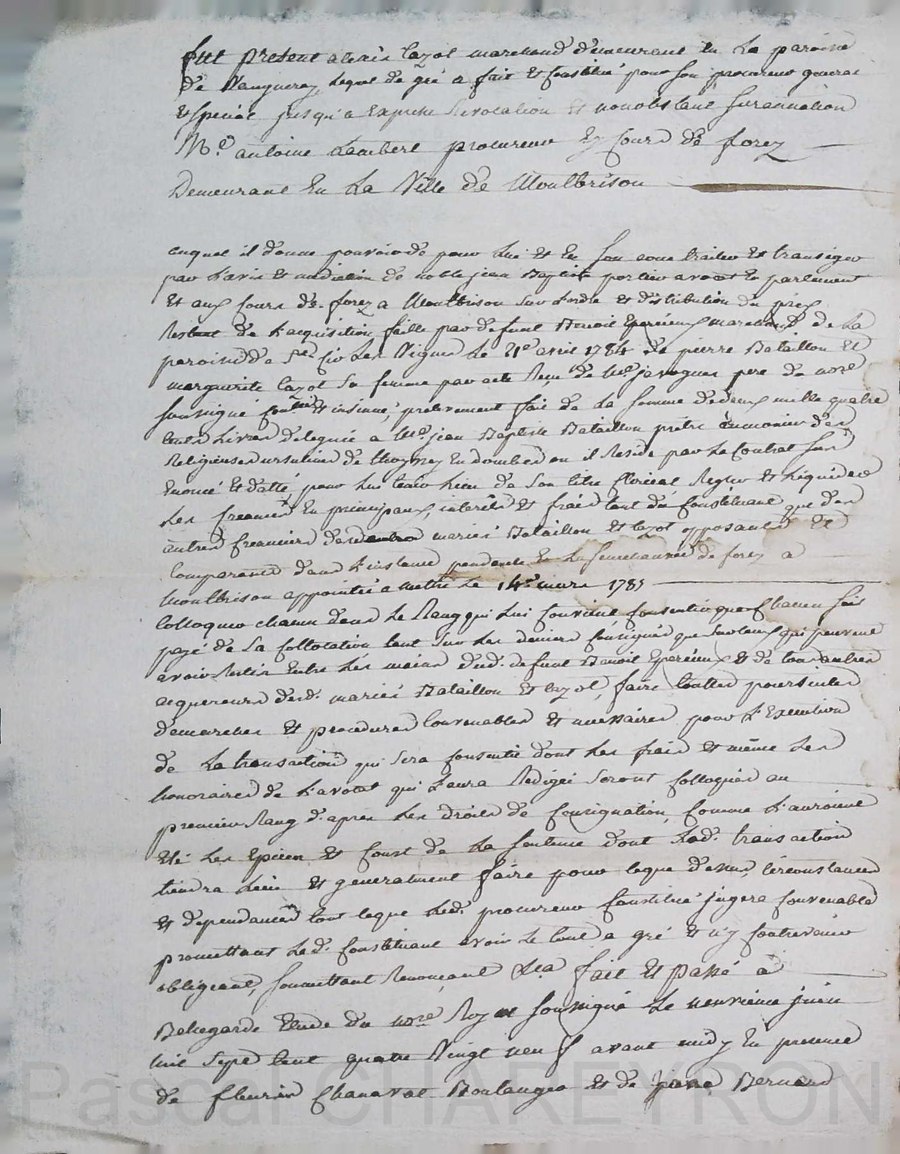 fut present alexis cazol marchand demeurant en la paroisse
de lequel de gré a fait et constitué pour son procureur general
et special jusqu'a expresse revocation et nonobstant surannation
Me antoine Lambert procureur ez cours de forez
Demeurant en la Ville de Montbrison
auquel il donne pouvoir de pour lui et en son nom traiter et transiger
par l'avis et mediation de noble jean Baptiste portier avocat en parlement
et aux cours de forez a Montbrison sur l'ordre et distribution du prix
Restant de l'acquisition faitte par defunt Benoit marchand de la
paroisse de St Cir Les Vignes le 21e avril 1784 de pierre Bataillon et
marguerite cazol sa femme par acte Reçu de Me javogues pere du nore
soussigné controllé et insinué, prelevement fait de la somme de deux mille quatre
cents Livres deleguée a Me jean Baptiste Bataillon prêtre aumonier des
Religieuses ursulines de thoissey en dombes ou il Reside par le Contrat sus
enoncé et datté, pour lui tenir lieu de son titre clerical Regler et liquider
les creances en principaux, interets et frais tant du constituant que des
autres creanciers desd mariés Bataillon et cazol opposants et
Comparants dans l'instance pendante en la senechaussée de forez a
Montbrison appointée a mettre le 14e mars 1785
Colloquer chacun dans le Rang qui lui convient consentir que chacun soit
payé de sa collocation tant sur les deniers consignés que sur ceux qui peuvent
avoir Restés entre les mains dud. defunt Benoit et de tous autres
acquereurs desd. mariés Bataillon et cazol, faire touttes poursuites
demarches et procedures convenables et necessaires pour l'Execution
de la transaction qui sera consentie dont les frais et même les
honoraires de l'avocat qui l'aura Redigée seront colloqués au
premier Rang d'apres les droits de consignation, Comme l'auroient
été les epices et coust de la sentence dont lad. transaction
tiendra lieu et generalement faire pour ce que dessus circonstances
et dependances tout ce que led. procureur constitué jugera convenable
promettant led. constituant avoir le tout a gré et n'y contrevenir
obligeant, soumettant Renonçant &ca fait et passé à
Bellegarde Etude du nore Royal soussigné le neuvieme juin
mil sept cent quatre Vingt neuf avant midy en presence
de fleurin Chanavat Boulanger et de Bernard
Pascal CHAREYRON